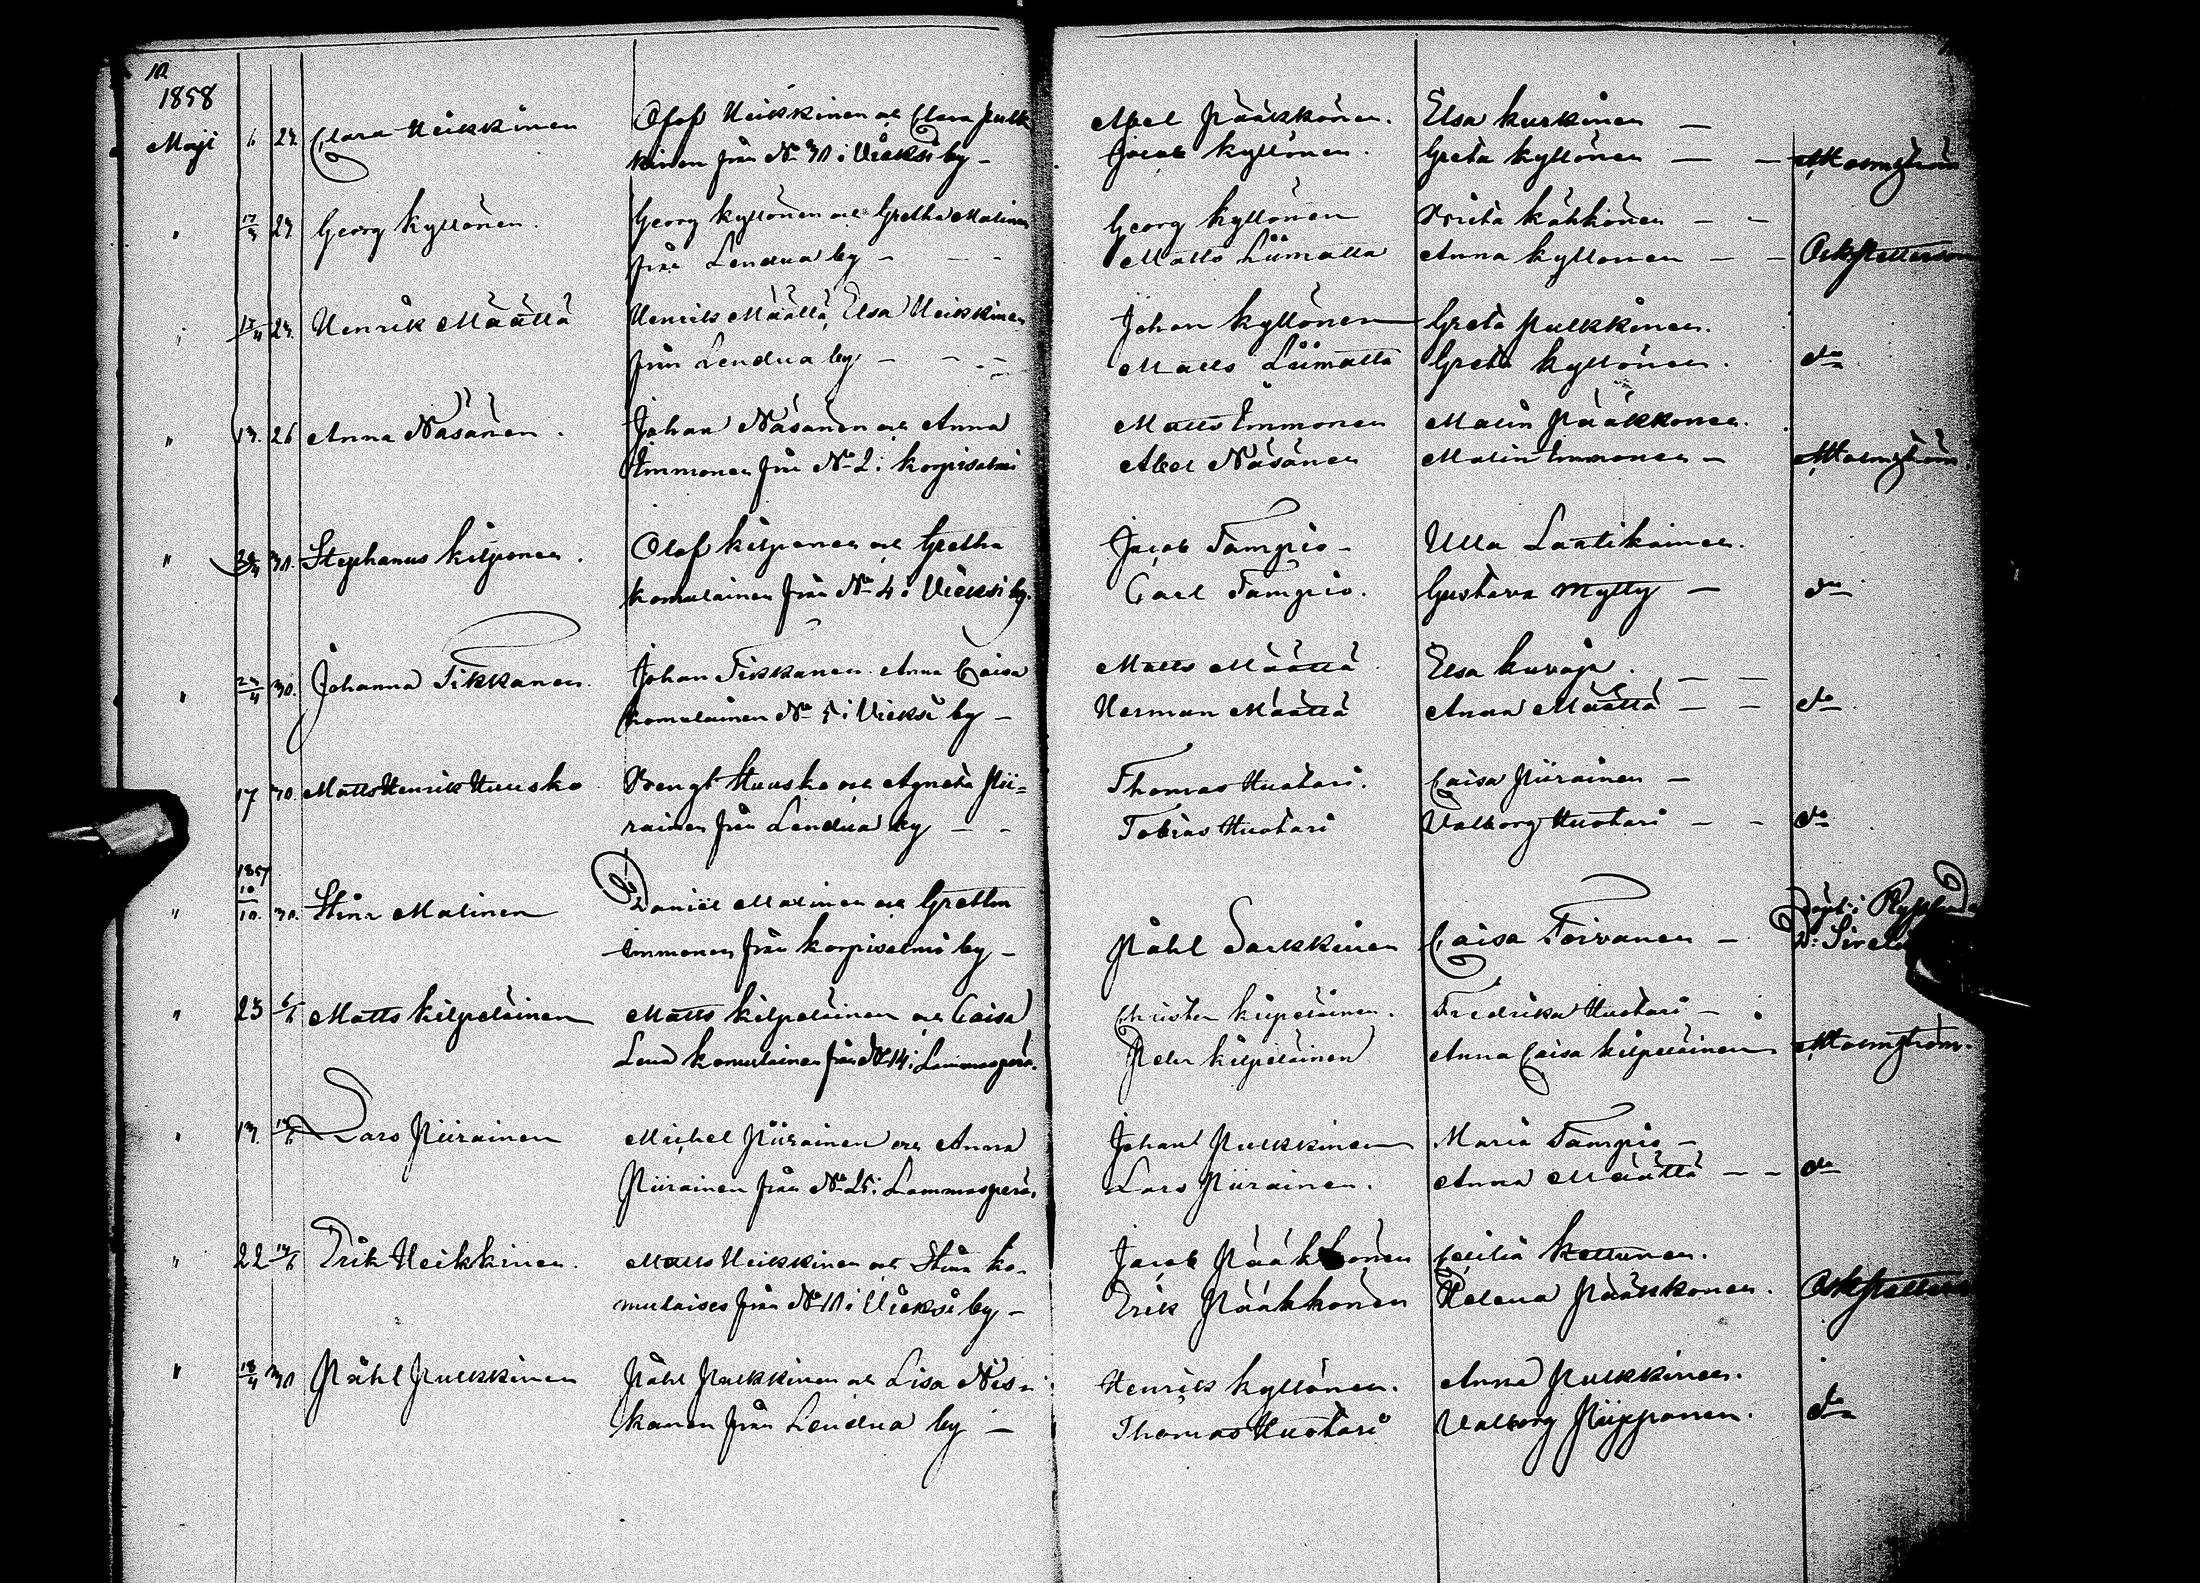 10
1858
Maji 6 24. Clara Heikkinen
Olof Heikkinen och Clara Pulk
kinen från No 30 i Vieksi by -
Abel Pääkkönen. Elsa Kurkinen -
Jacob Kyllönen. Greta Kyllönen - - A. Malmström
" 24. Georg Kyllönen.
Georg Kyllönen och Gretha Malinen
från Lendua by - - -
Georg Kyllönen Brita Kähkönen - -
Matts Liimatta Anna Kyllönen - - Osk. Petterson
" 24. Henrik Määttä
Henrik Määttä, Elsa Heikkinen
från Lendua by - - -
Johan Kyllönen Greta Pulkkinen.
Matts Liimatta Greta Kyllönen. do
" 13. 26 Anna Näsänen.
Johan Näsänen och Anna
Immonen från No 2 i Korpisalmi
Matts Immonen Malin Pääkkönen.
Abel Näsänen Malin Immonen - A. Malmström
" 30. Stephanus Kilponen.
Olof Kilponen och Gretha
Komulainen från No 4 i Vieksi by.
Jacob Tampio - Ulla Lantikainen.
Carl Tampio. Gustava Mylly - do
" 30. Johanna Tikkanen.
Johan Tikkanen Anna Caisa
Komulainen No 5 i Vieksi by -
Matts Määttä Elsa Kuvaja. - -
Herman Määttä Anna Määttä - - do
17 30. Matts Henrik Huusko
Bengt Huusko och Agneta Pii=
rainen från Lendua by - -
Thomas Huotari. Caisa Piirainen -
Tobias Huotari Valborg Huotari - - do
1857
" 10/10. 30. Stina Malinen
Daniel Malinen och Gretha
Immonen från Korpisalmi by -
Påhl Sarkkinen Caisa Toivanen -
" 23 Matts Kilpeläinen
Matts Kilpeläinen och Caisa
Lena Komulainen från No 14 i Lammasperä.
Christer Kilpeläinen. Fredrika Huotari -
Peter Kilpeläinen Anna Caisa Kilpeläinen A. Malmström.
" 13. Lars Piirainen
Michel Piirainen och Anna
Piirainen från No 25 i Lammasperä.
Johan Pulkkinen Maria Tampio -
Lars Piirainen. Anna Määttä - - do
" 22 Erik Heikkinen.
Matts Heikkinen och Stina Ko-
mulaines från No 11 i Vieksi by -
Jacob Pääkkönen Cecilia Kettunen.
Erik Pääkkönen Helena Pääkkönen. Osk. Petterson
" 18/4 30 Påhl Pulkkinen
Påhl Pulkkinen och Lisa Nis-
kanen från Lendua by -
Henrik Kyllönen. Anna Pulkkinen.
Thomas Huotari Valborg Piipponen. do